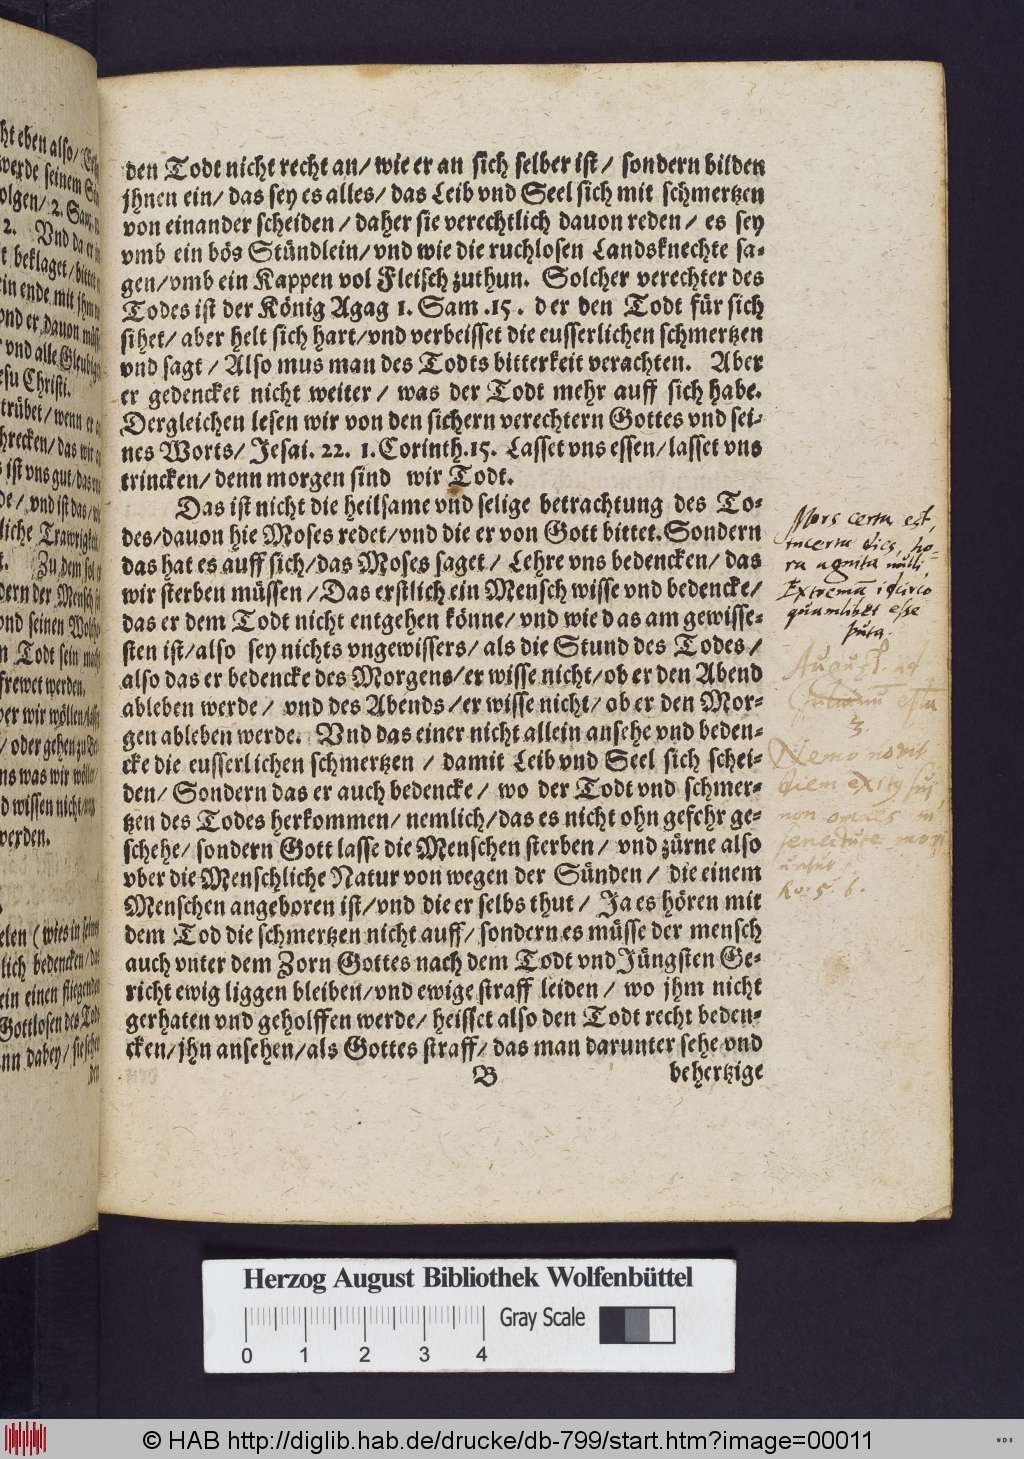 den Todt nicht recht an/ wie er an sich selber ist/ sondern bilden
jhnen ein/ das sey es alles/ das Leib vnd Seel sich mit schmertzen
von einander scheiden/ daher sie verechtlich dauon reden/ es sey
vmb ein bös Stündlein/ vnd wie die ruchlosen Landsknechte sa-
gen/ vmb ein Kappen vol Fleisch zuthun. Solcher verechter des
Todes ist der König Agag 1. Sam .15. der den Todt für sich
sihet/ aber helt sich hart/ vnd verbeisset die eusserlichen schmertzen
vnd sagt/ Also mus man des Todts bitterkeit verachten. Aber
er gedencket nicht weiter/ was der Todt mehr auff sich habe.
Dergleichen lesen wir von den sichern verechtern Gottes vnd sei-
nes Worts/ Jesai. 22. 1. Corinth. 15. Lasset vns essen/ lasset vns
trincken/ denn morgen sind wir Todt.
Das ist nicht die heilsame vnd selige betrachtung des To-
des/ dauon hie Moses redet/ vnd die er von Gott bittet. Sondern
das hat es auff sich/ das Moses saget/ Lehre vns bedencken/ das
wir sterben müssen/ Das erstlich ein Mensch wisse vnd bedencke/
das er dem Todt nicht entgehen könne/ vnd wie das am gewisse-
sten ist/ also sey nichts vngewissers/ als die Stund des Todes/
also das er bedencke des Morgens/ er wisse nicht/ ob er den Abend
ableben werde/ vnd des Abends/ er wisse nicht/ ob er den Mor-
gen ableben werde. Vnd das einer nicht allein ansehe vnd beden-
cke die eusserlichen schmertzen/ damit Leib vnd Seel sich schei-
den/ Sondern das er auch bedencke/ wo der Todt vnd schmer-
tzen des Todes herkommen/ nemlich/ das es nicht ohn gefehr ge-
schehe/ sondern Gott lasse die Menschen sterben/ vnd zürne also
vber die Menschliche Natur von wegen der Sünden/ die einem
Menschen angeboren ist/ vnd die er selbs thut/ Ja es hören mit
dem Tod die schmertzen nicht auff/ sondern es müsse der mensch
auch vnter dem Zorn Gottes nach dem Todt vnd Jüngsten Ge-
richt ewig liggen bleiben/ vnd ewige straff leiden/ wo jhm nicht
gerhaten vnd geholffen werde/ heisset also den Todt recht beden-
cken/ jhn ansehen/ als Gottes straff/ das man darunter sehe vnd
B behertzige
Mors certa est,
incerta dies, ho-
ra agnita nulli
Extremum
quamlibet esse
puta.
August. ad
3.
Nemo novit
diem exitus sui,
non omnes in
senectute
Herzog August Bibliothek Wolfenbüttel
Gray Scale
0 1 2 3 4
© HAB http://diglib.hab.de/drucke/db-799/start.htm?image=00011